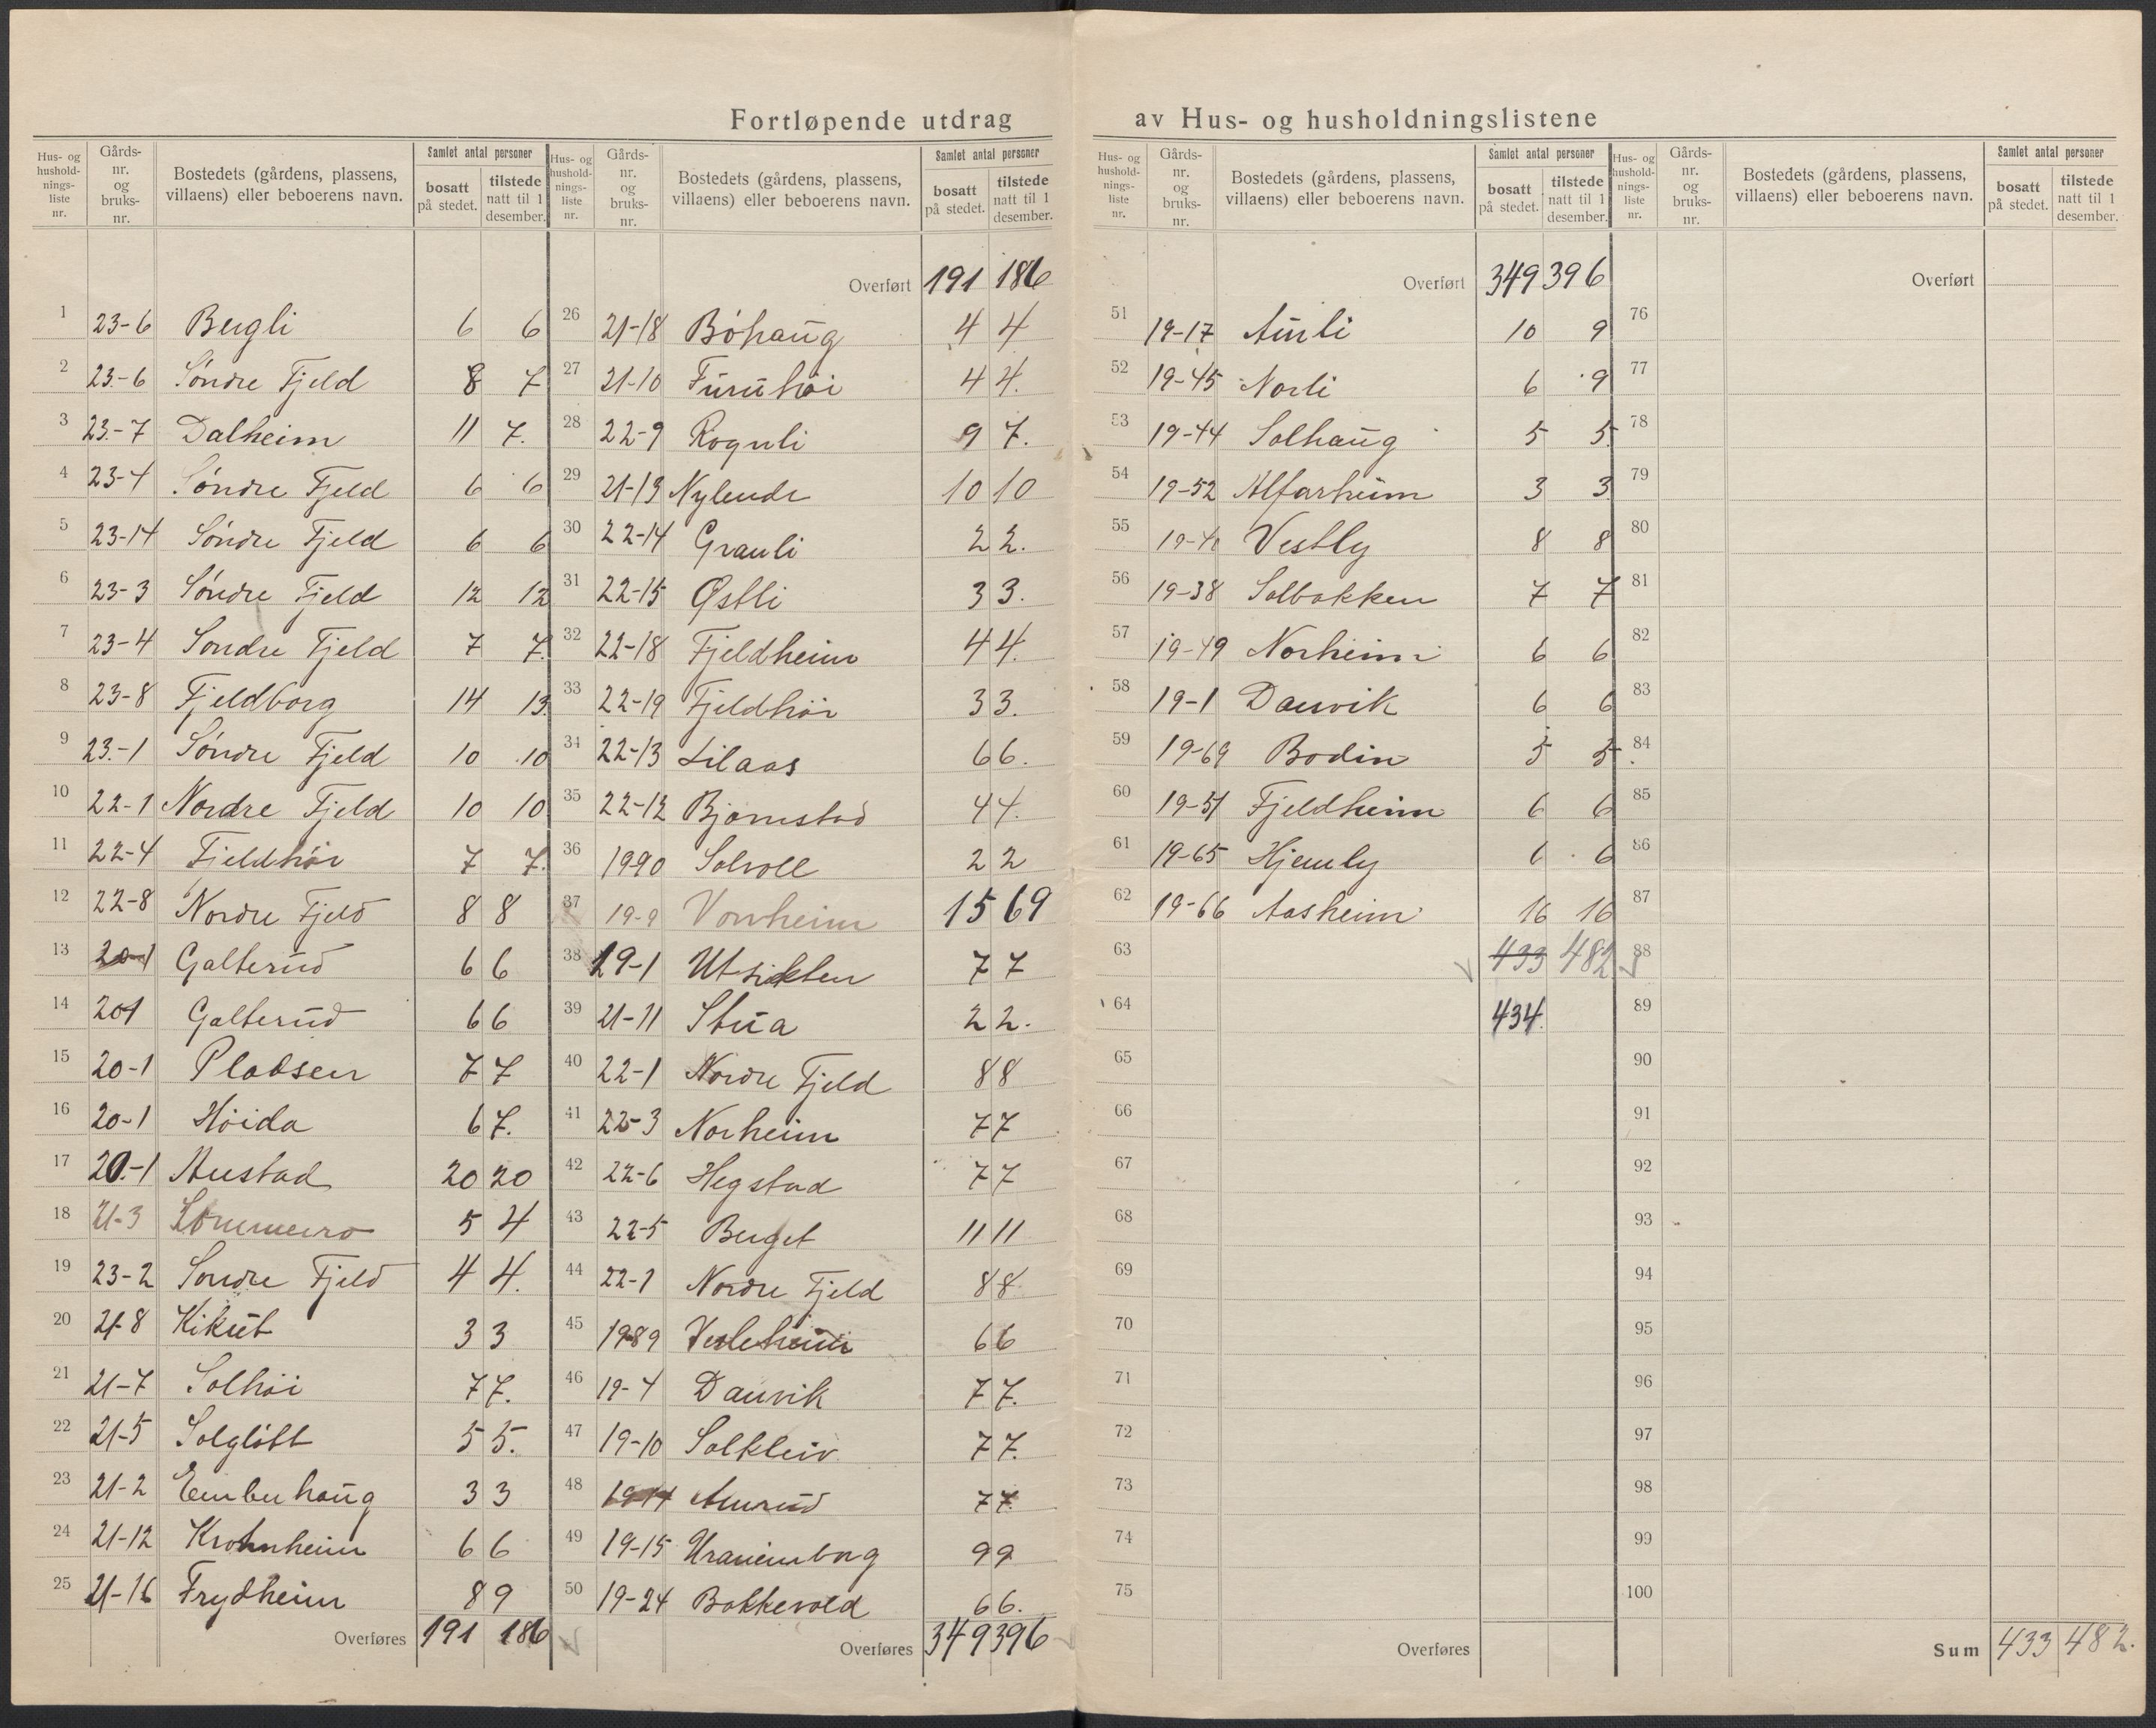 Fortløpende utdrag av Hus- og husholdningslistene
Hus- og husholdningsliste nr. | Gårdsnr. og bruksnr. | Bostedets (gårdens, plassens, villaens) eller beboerens navn. | Samlet antal personer bosatt på stedet. | tilstede natt til 1 desember.
1 23-6 Bergli 6 6
2 23-6 Söndre Fjeld 8 7
3 23-7 Dalheim 11 7.
4 23-4 Söndre Fjeld 6 6
5 23-14 Söndre Fjeld 6 6
6 23-3 Söndre Fjeld 12 12
7 23-4 Sondre Fjeld 7 7.
8 23-8 Fjeldborg 14 13.
9 23-1 Söndre Fjeld 10 10
10 22-1 Nordre Fjeld 10 10
11 22-4 Fjeldhöi 7 7.
12 22-8 Nordre Fjeld 8 8
13 20-1 Galterud 6 6
14 20-1 Galterud 6 6
15 20-1 Pladsen 7 7
16 20-1 Höida 6 7.
17 20-1 Austad 20 20
18 21-3 5 4
19 23-2 Sondre Fjeld 4 4.
20 21-8 Kikut 3 3
21 21-7 Solhöi 7 7.
22 21-5 Solglött 5 5.
23 21-2 Einberhaug 3 3
24 21-12 Krohnheim 6 6
25 21-16 Frydheim 8 9
Overføres 191 186
Hus- og husholdningsliste nr. | Gårdsnr. og bruksnr. | Bostedets (gårdens, plassens, villaens) eller beboerens navn. | Samlet antal personer bosatt på stedet. | tilstede natt til 1 desember.
Overført 191 186
26 21-18 Böhaug 4 4
27 21-10 Furuhöi 4 4.
28 22-9 Rognli 9 7.
29 21-19 Nylende 10 10
30 22-14 Granli 2 2.
31 22-15 Østli 3 3.
32 22-18 Fjeldheim 4 4.
33 22-19 Fjeldhöi 3 3.
34 22-13 Lilaas 6 6.
35 22-12 Bjørnstad 4 4.
36 19-90 Solvoll 2 2
37 19-9 15 69
38 19-1 Utsikten 7 7
39 21-11 Stua 2 2.
40 22-1 Nordre Fjeld 8 8
41 22-3 Norheim 7 7
42 22-6 Hegstad 7 7
43 22-5 Berget 11 11
44 22-1 Nordre Fjeld 8 8
45 19-89 Vesleheim 6 6
46 19-4 Dauvik 7 7.
47 19-10 Solkleiv 7 7.
48 19-14 Amrud 7 7.
49 19-15 Uranienborg 9 9
50 19-24 Bakkevold 6 6.
Overføres 349 396
Hus- og husholdningsliste nr. | Gårdsnr. og bruksnr. | Bostedets (gårdens, plassens, villaens) eller beboerens navn. | Samlet antal personer bosatt på stedet. | tilstede natt til 1 desember.
Overført 349 396
51 19-17 10 9
52 19-45 Norli 6 9
53 19-44 Solhaug 5 5.
54 19-52 Alfarheim 3 3
55 Vestly 8 8
56 19-38 Solbakken 7 7
57 19-49 Norheim 6 6
58 19-1 Dauvik 6 6
59 19-69 Bodin 5 5
60 19-51 Fjeldheim 6 6
61 19-65 Hjemly 6 6
62 19-66 Aasheim 16 16
63 433 482
64 434.
65
66
67
68
69
70
71
72
73
74
75
Overføres
Hus- og husholdningsliste nr. | Gårdsnr. og bruksnr. | Bostedets (gårdens, plassens, villaens) eller beboerens navn. | Samlet antal personer bosatt på stedet. | tilstede natt til 1 desember.
Overført
76
77
78
79
80
81
82
83
84
85
86
87
88
89
90
91
92
93
94
95
96
97
98
99
100
Sum 433 482.